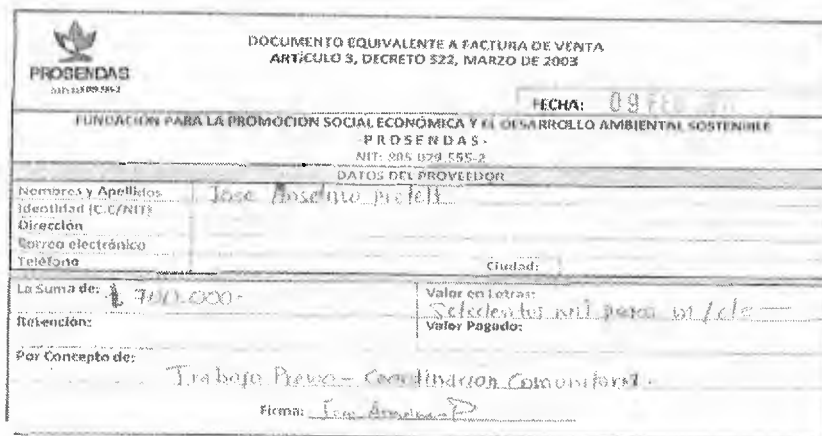 DOCUMENTO EQUIVALENTE A FACTURA DE VENTA
ARTÍCULO 3, DECRETO 522, MARZO DE 2003
PROSENDAS
FECHA: 09 FEB
FUNDACIÓN PARA LA PROMOCION SOCIAL ECONÓMICA Y EL DESARROLLO AMBIENTAL SOSTENIBLE
-PROSENDAS-
NIT: 805.029.555-2
DATOS DEL PROVEEDOR
Nombres y Apellidos Jose Anselmo
Identidad (C.C/NIT)
Dirección
Correo electrónico
Teléfono Ciudad:
La Suma de: $ 700.000- Valor en Letras:
Setecientos mil pesos m/cte
Retención: Valor Pagado:
Por Concepto de:
Trabajo Previo - Coordinacion Comunitaria.
Firma: Jose Anselmo P